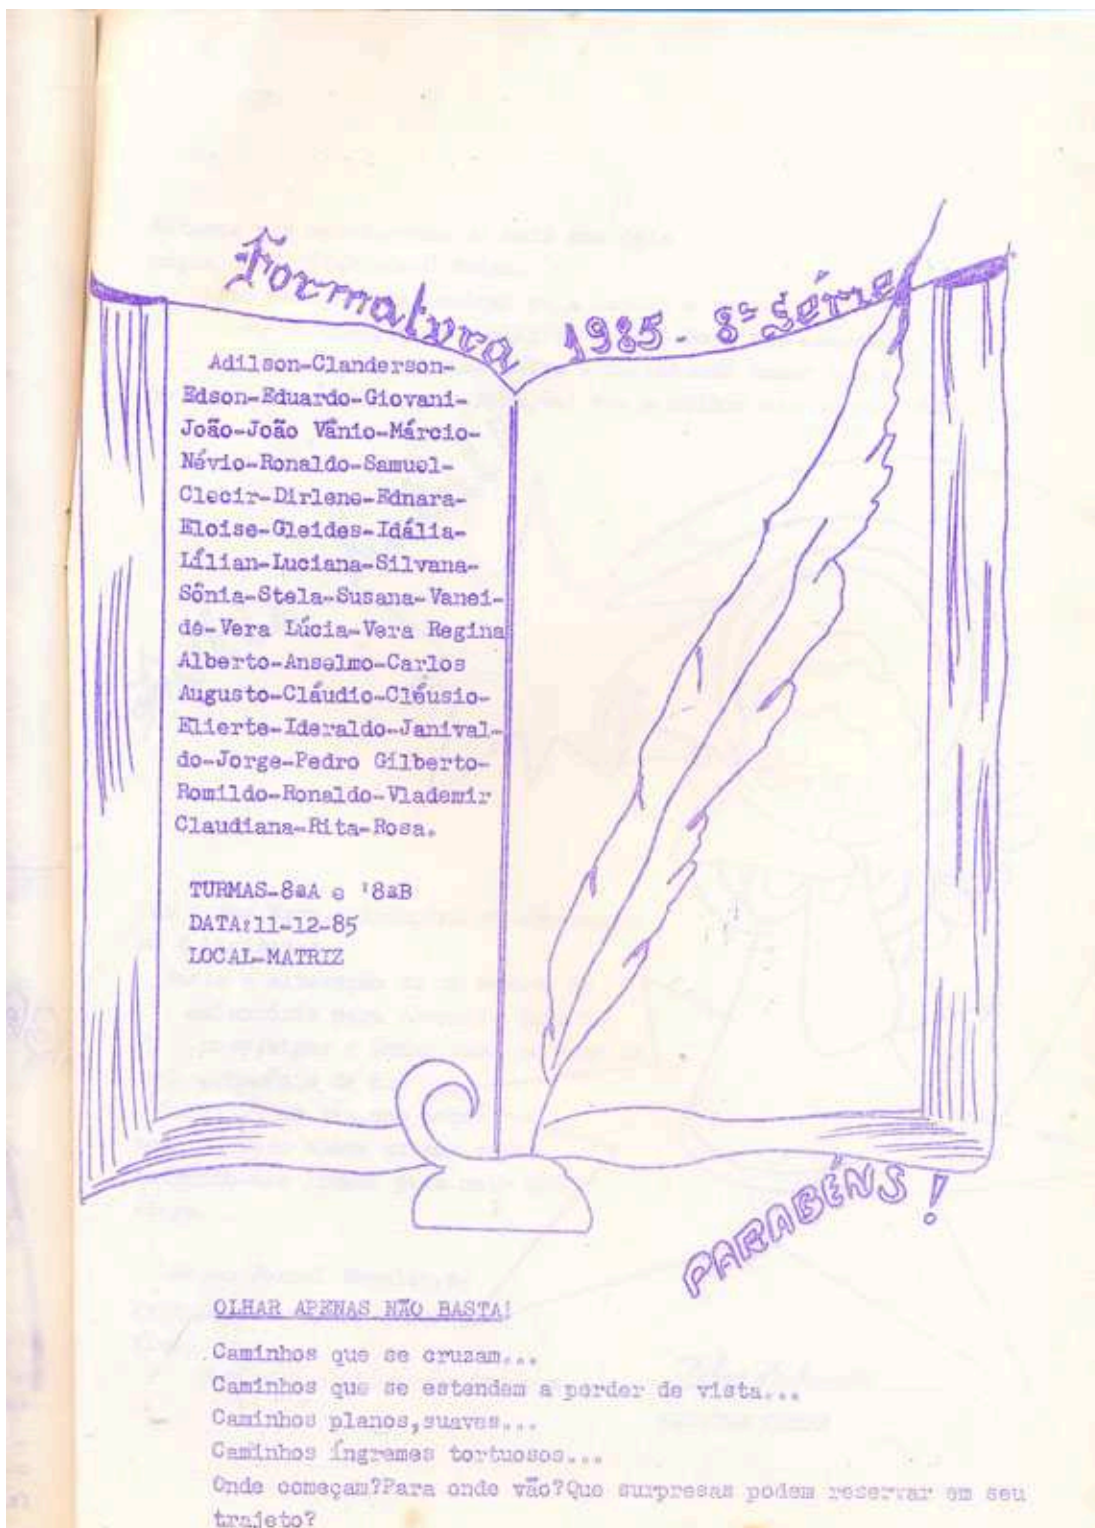 Formatura 1985 - 8ª Série
Adilson-Clanderson-
Edson-Eduardo-Giovani-
João-João Vânio-Márcio-
Névio-Ronaldo-Samuel-
Clecir-Dirlene-Ednara-
Eloise-Gleides-Idália-
Lílian-Luciana-Silvana-
Sônia-Stela-Susana-Vanei-
de-Vera Lúcia-Vera Regina
Alberto-Anselmo-Carlos
Augusto-Cláudio-Cléusio-
Elierte-Ideraldo-Janival-
do-Jorge-Pedro Gilberto-
Romildo-Ronaldo-Vlademir
Claudiana-Rita-Rosa.
TURMAS-8aA e '8aB
DATA:11-12-85
LOCAL-MATRIZ
PARABÉNS!
OLHAR APENAS NÃO BASTA!
Caminhos que se cruzam...
Caminhos que se estendem a perder de vista...
Caminhos planos,suaves...
Caminhos íngremes tortuosos...
Onde começam?Para onde vão?Que surpresas podem reservar em seu
trajeto?